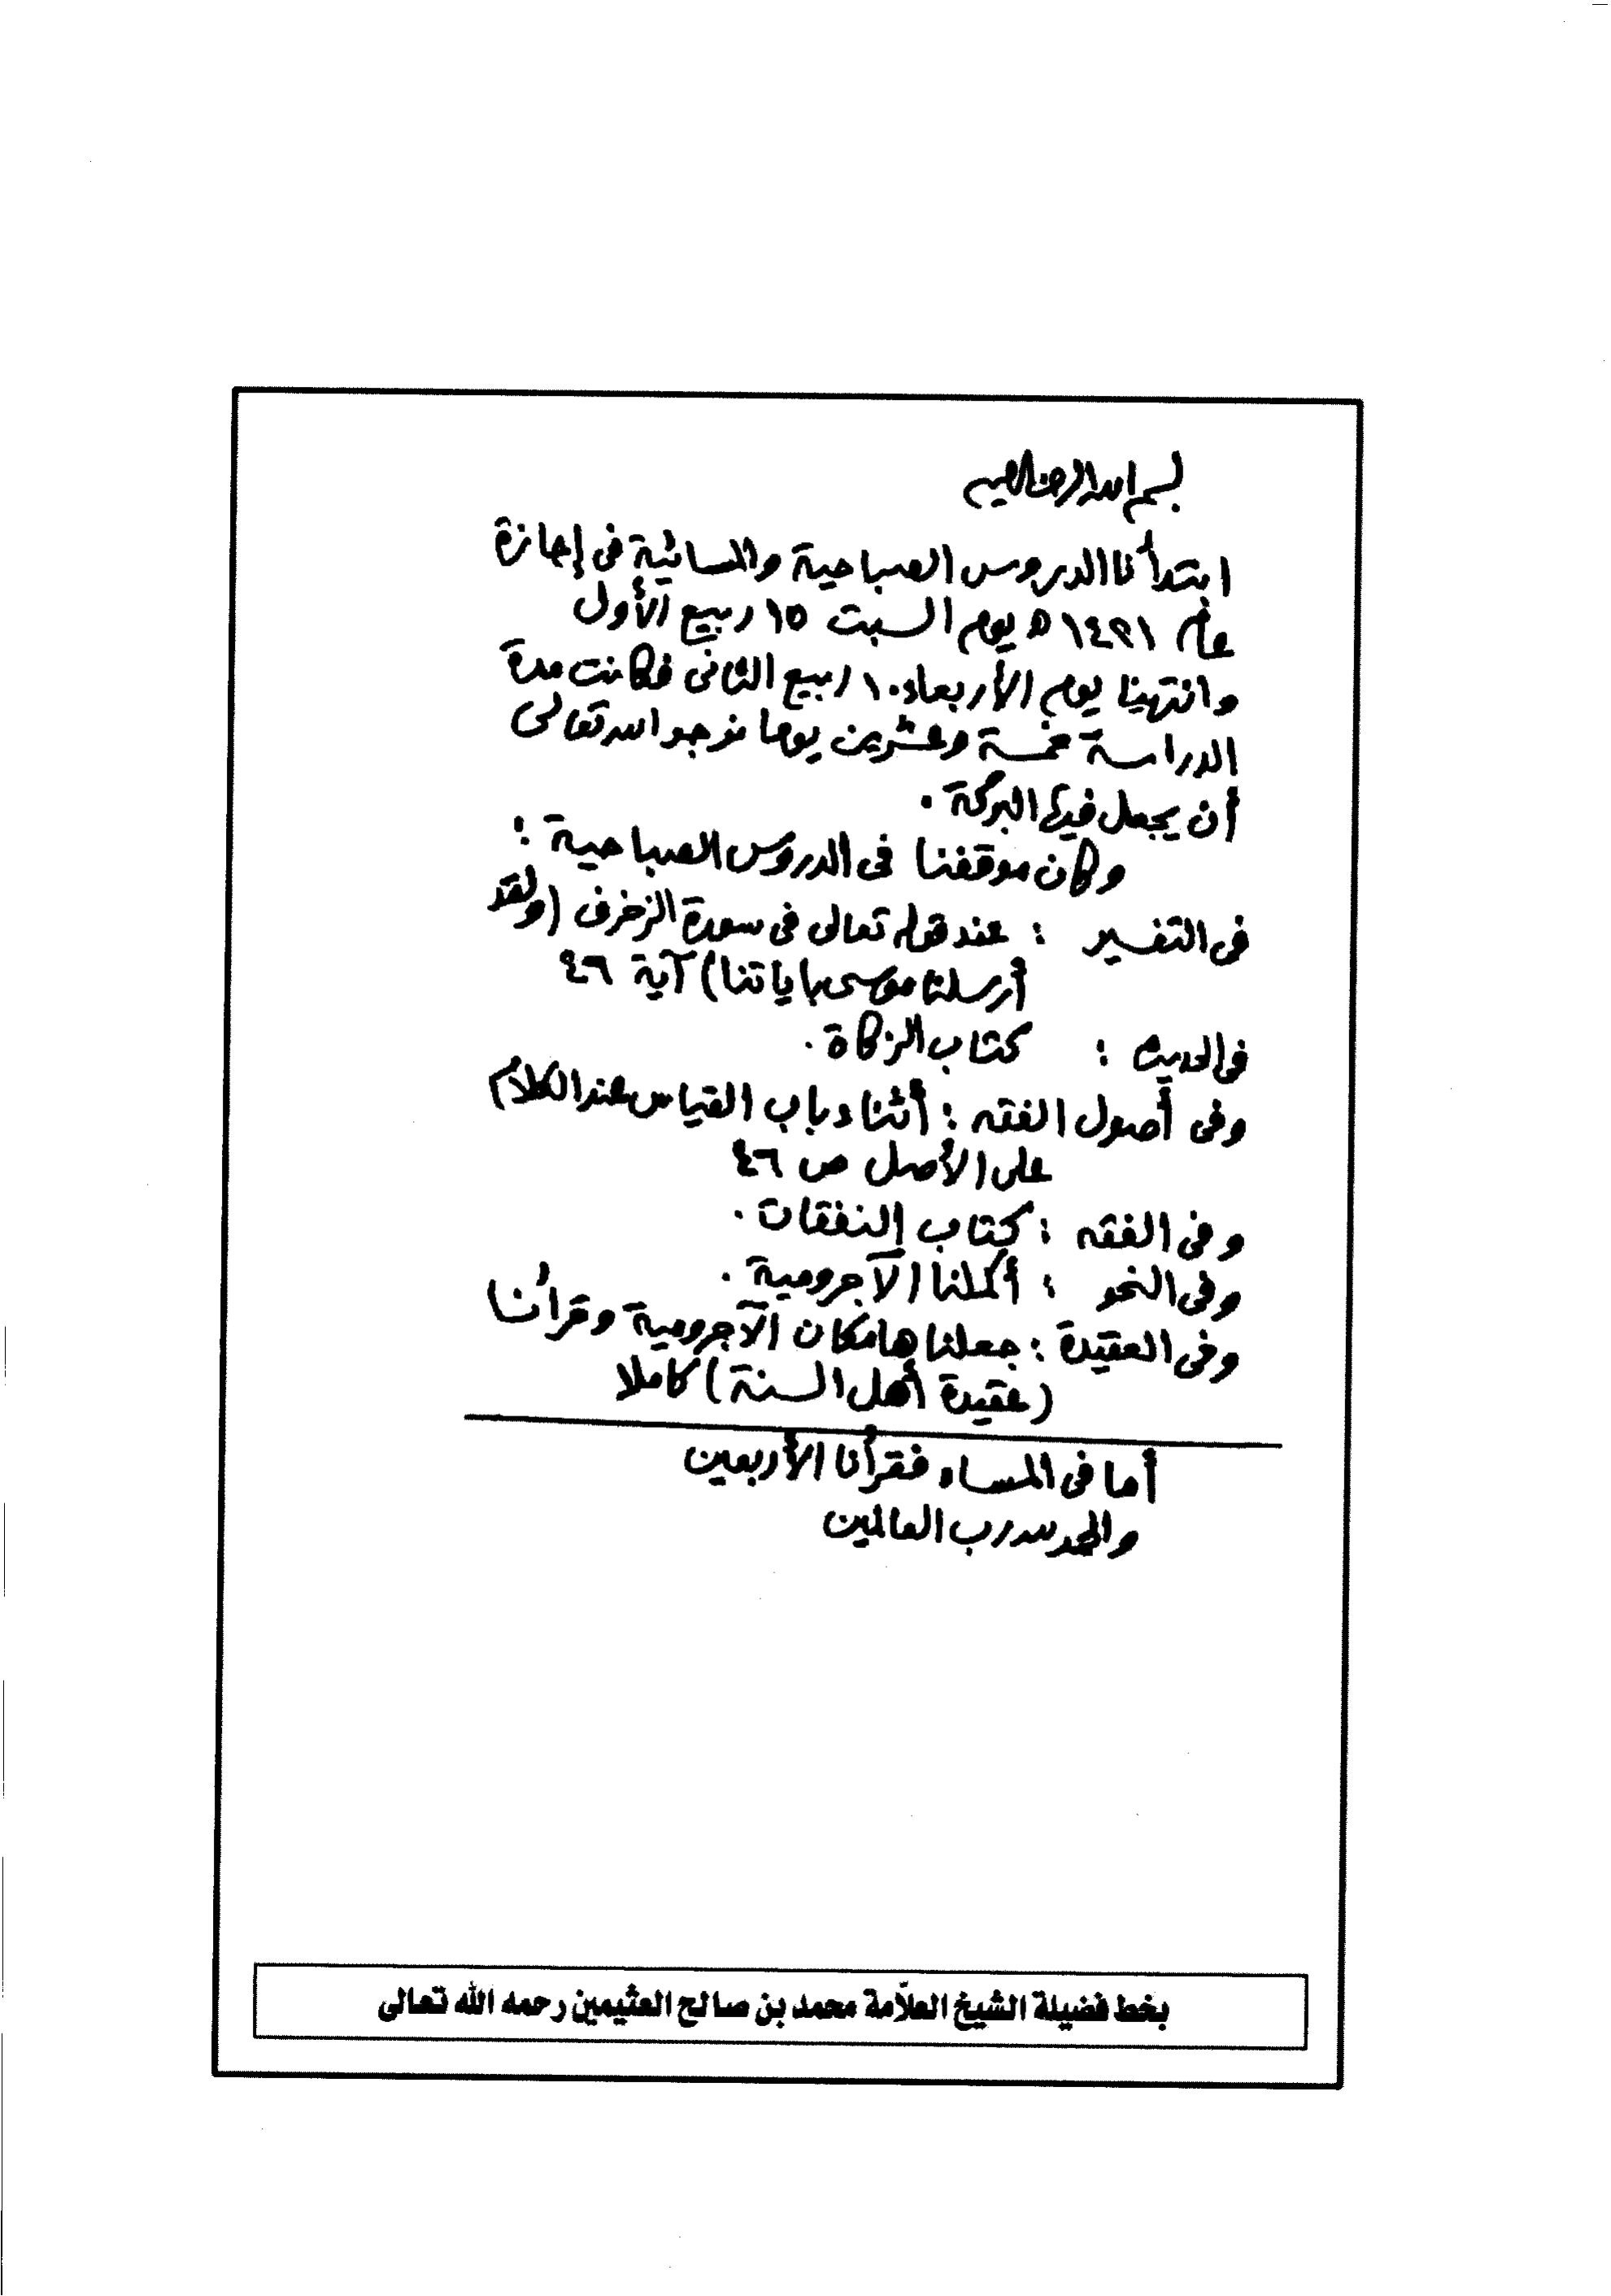 بسم الله الرحمن الرحيم
ابتدأنا الدروس الصباحية والمسائية فى إجازة
عام ١٤٢١ه يوم السبت ١٥ ربيع الأول
وانتهينا يوم الأربعاء ١٠ ربيع الثانى فكانت مدة
الدراسة خمسة وعشرين يوما نرجو الله تعالى
أن يجعل فيها البركة .
وكان موقفنا فى الدروس الصباحية :
فى التفسير : عند قوله تعالى فى سورة الزخرف (ولقد
أرسلنا موسى بآياتنا) آية ٤٦
فى الحديث : كتاب الزكاة .
وفى أصول الفقه : أثناء باب القياس عند الكلام
على الأصل ص ٤٦
وفى الفقه : كتاب النفقات .
وفى النحو : أكملنا الآجرومية .
وفى العقيدة : جعلناها مكان الآجرومية وقرأنا
(عقيدة أهل السنة) كاملا
أما فى المساء فقرأنا الأربعين
والحمد لله رب العالمين
بخط فضيلة الشيخ العلاّمة محمد بن صالح العثيمين رحمه الله تعالى